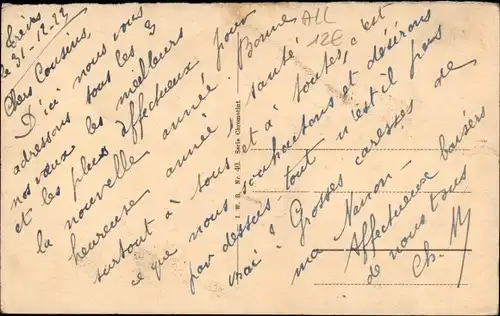 Trèves
le 31-12-23
Chers Cousins,
D'ici nous vous
adressons tous les 3
nos vœux les meilleurs
et les plus affectueux pour
la nouvelle année. Bonne
heureuse année santé
surtout à tous et à toutes, c'est
ce que nous souhaitons et désirons
par dessus tout n'est il pas
vrai? Grosses caresses de
ma Nanon - baisers
Affectueux
de nous tous
Ch. M
All
12€
Nr. 40. Serie Chromotint.